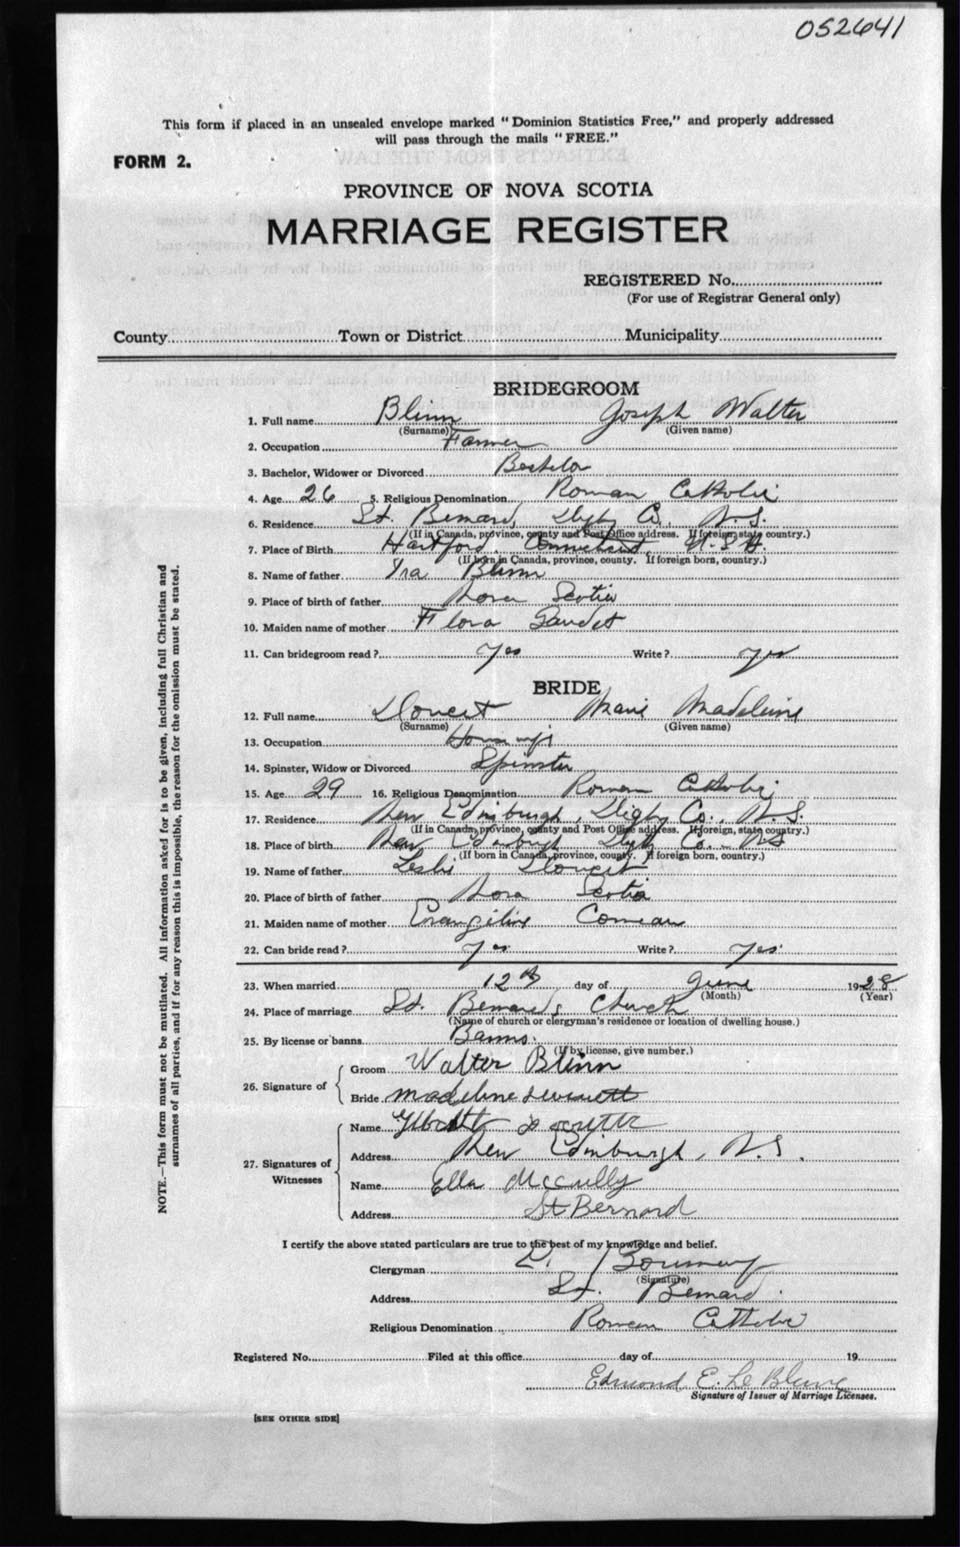 052641
This form if placed in an unsealed envelope marked "Dominion Statistics Free," and properly addressed
will pass through the mails "FREE."
FORM 2.
PROVINCE OF NOVA SCOTIA
MARRIAGE REGISTER
REGISTERED No.
(For use of Registrar General only)
County Town or District Municipality
BRIDEGROOM
1. Full name Blinn Joseph Walter
(Surname) (Given name)
2. Occupation Farmer
3. Bachelor, Widower or Divorced Bachelor
4. Age 26 5. Religious Denomination Roman Catholic
6. Residence St. Bernard, Digby Co., N.S.
(If in Canada, province, county and Post Office address. If foreign, state country.)
7. Place of Birth Hartford, Connecticut, U.S.A.
(If born in Canada, province, county. If foreign born, country.)
8. Name of father Ira Blinn
9. Place of birth of father Nova Scotia
10. Maiden name of mother Flora Gaudet
11. Can bridegroom read? Yes Write? yes
BRIDE
12. Full name Doucet Marie Madeleine
(Surname) (Given name)
13. Occupation Housewife
14. Spinster, Widow or Divorced Spinster
15. Age 29 16. Religious Denomination Roman Catholic
17. Residence New Edinburgh, Digby Co., N.S.
(If in Canada, province, county and Post Office address. If foreign, state country.)
18. Place of birth New Edinburgh Digby Co. NS
(If born in Canada, province, county. If foreign born, country.)
19. Name of father Leslie Doucet
20. Place of birth of father Nova Scotia
21. Maiden name of mother Evangeline Comeau
22. Can bride read? Yes Write? Yes
23. When married 12th day of June 1928
(Month) (Year)
24. Place of marriage St. Bernard's Church
(Name of church or clergyman's residence or location of dwelling house.)
25. By license or banns Banns.
(If by license, give number.)
26. Signature of
Groom Walter Blinn
Bride Madeline
27. Signatures of Witnesses
Name
Address New Edinburgh, N.S.
Name Ella McCully
Address St Bernard
I certify the above stated particulars are true to the best of my knowledge and belief.
Clergyman
(Signature)
Address St. Bernard.
Religious Denomination Roman Catholic
Registered No. Filed at this office day of 19
Edmond E. Le Blanc
Signature of Issuer of Marriage Licenses.
[SEE OTHER SIDE]
NOTE.—This form must not be mutilated. All information asked for is to be given, including full Christian and
surnames of all parties, and if for any reason this is impossible, the reason for the omission must be stated.